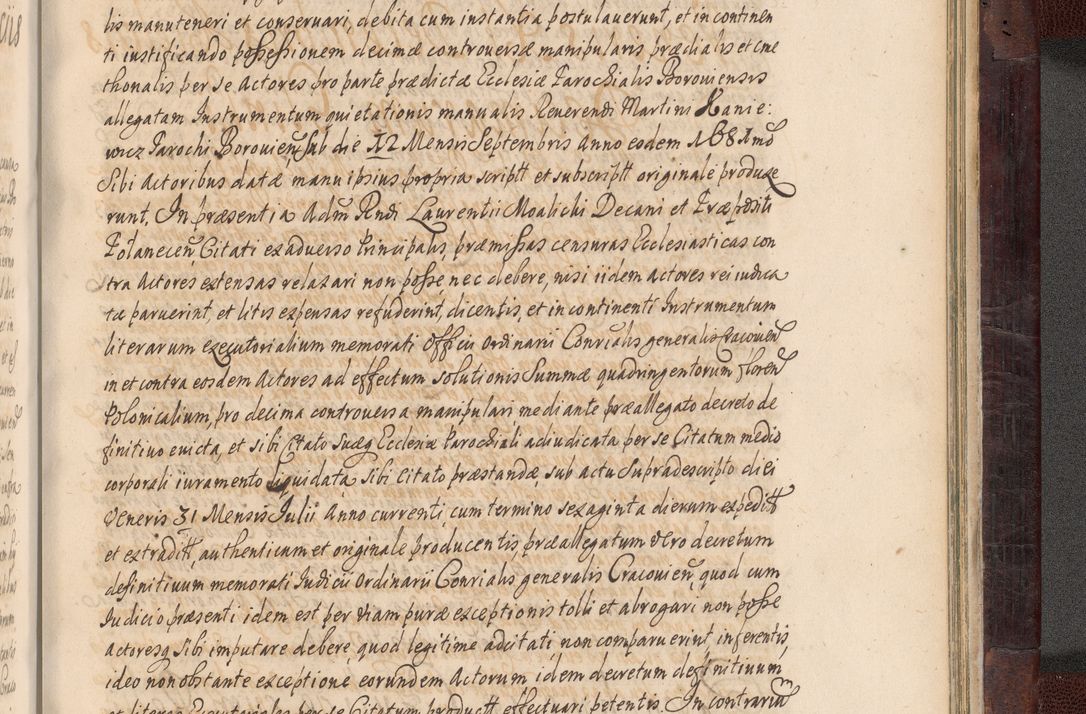 lis manuteneri et conseruari, debita cum instantia postulauerunt, et in continen
ti iustificando possessionem decimæ controuersæ manipularis prædialis et cme
thonalis per se Actores pro parte prædictæ Ecclesiæ Parochialis Borouiensis
allegatam Instrumentum quietationis manualis Reuerendi Martini Xanie:
wicz Parochi Borouien̄ sub die 12 Mensis Septembris Anno eodem 1681mo
Sibi Actoribus datæ manu ipsius propria script̄ et subscript̄ originale produxe
runt. In præsentia Adm̄ Rndi Laurentii Moalichi Decani et Præpositi
Polanecen̄ Citati ex aduerso Principalis, præmissas censuras Ecclesiasticas con
tra Actores extensas relaxari non posse nec debere, nisi iidem Actores rei iudica
tæ paruerint, et litis expensas refuderint, dicentis, et in continenti Instrumentum
literarum executorialium memorati Officii Ordinarii Conrialis generalis Cracouien̄
in et contra eosdem Actores ad effectum solutionis Summæ quadringentorum floren̄
Polonicalium, pro decima controuersa manipulari mediante præallegato decreto de
finitiuo euicta, et sibi Citato suæq Ecclesiæ Parochiali adiudicata per se Citatum medio
corporali iuramento liquidata sibi Citato præstandæ, sub actu supradescripto diei
Veneris 31 Mensis Iulii Anno currenti, cum termino sexaginta dierum expedit̄
et extradit̄, authenticum et originale producentis, præallegatum vero decretum
definitiuum memorati Iudicii Ordinarii Conrialis generalis Cracouien̄, quod cum
Iudicio præsenti idem est per viam puræ exceptionis tolli et abrogari non posse
actoresq sibi imputare debere, quod legitime adcitati non comparuerint, inferentis,
ideo non obstante exceptione eorundem Actorum idem decretum definitiuum
et literas Executoriales per se Citatum product̄ effectuari petentis. In contrarium